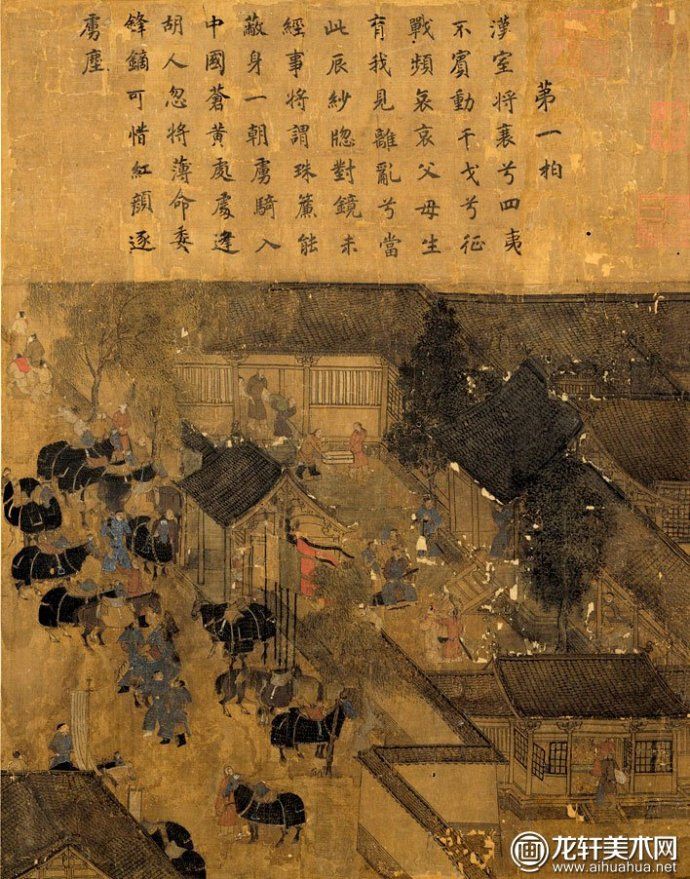 苐一拍
漢室將衰兮四夷
不賓動干戈兮征
戰頻哀哀父母生
育我見離亂兮當
此辰紗牕對鏡未
經事將謂珠簾能
蔽身一朝虜騎入
中國蒼黃處處逢
胡人忽將薄命委
鋒鏑可惜紅顏逐
虜塵
画 龙轩美术网
www.aihuahua.net